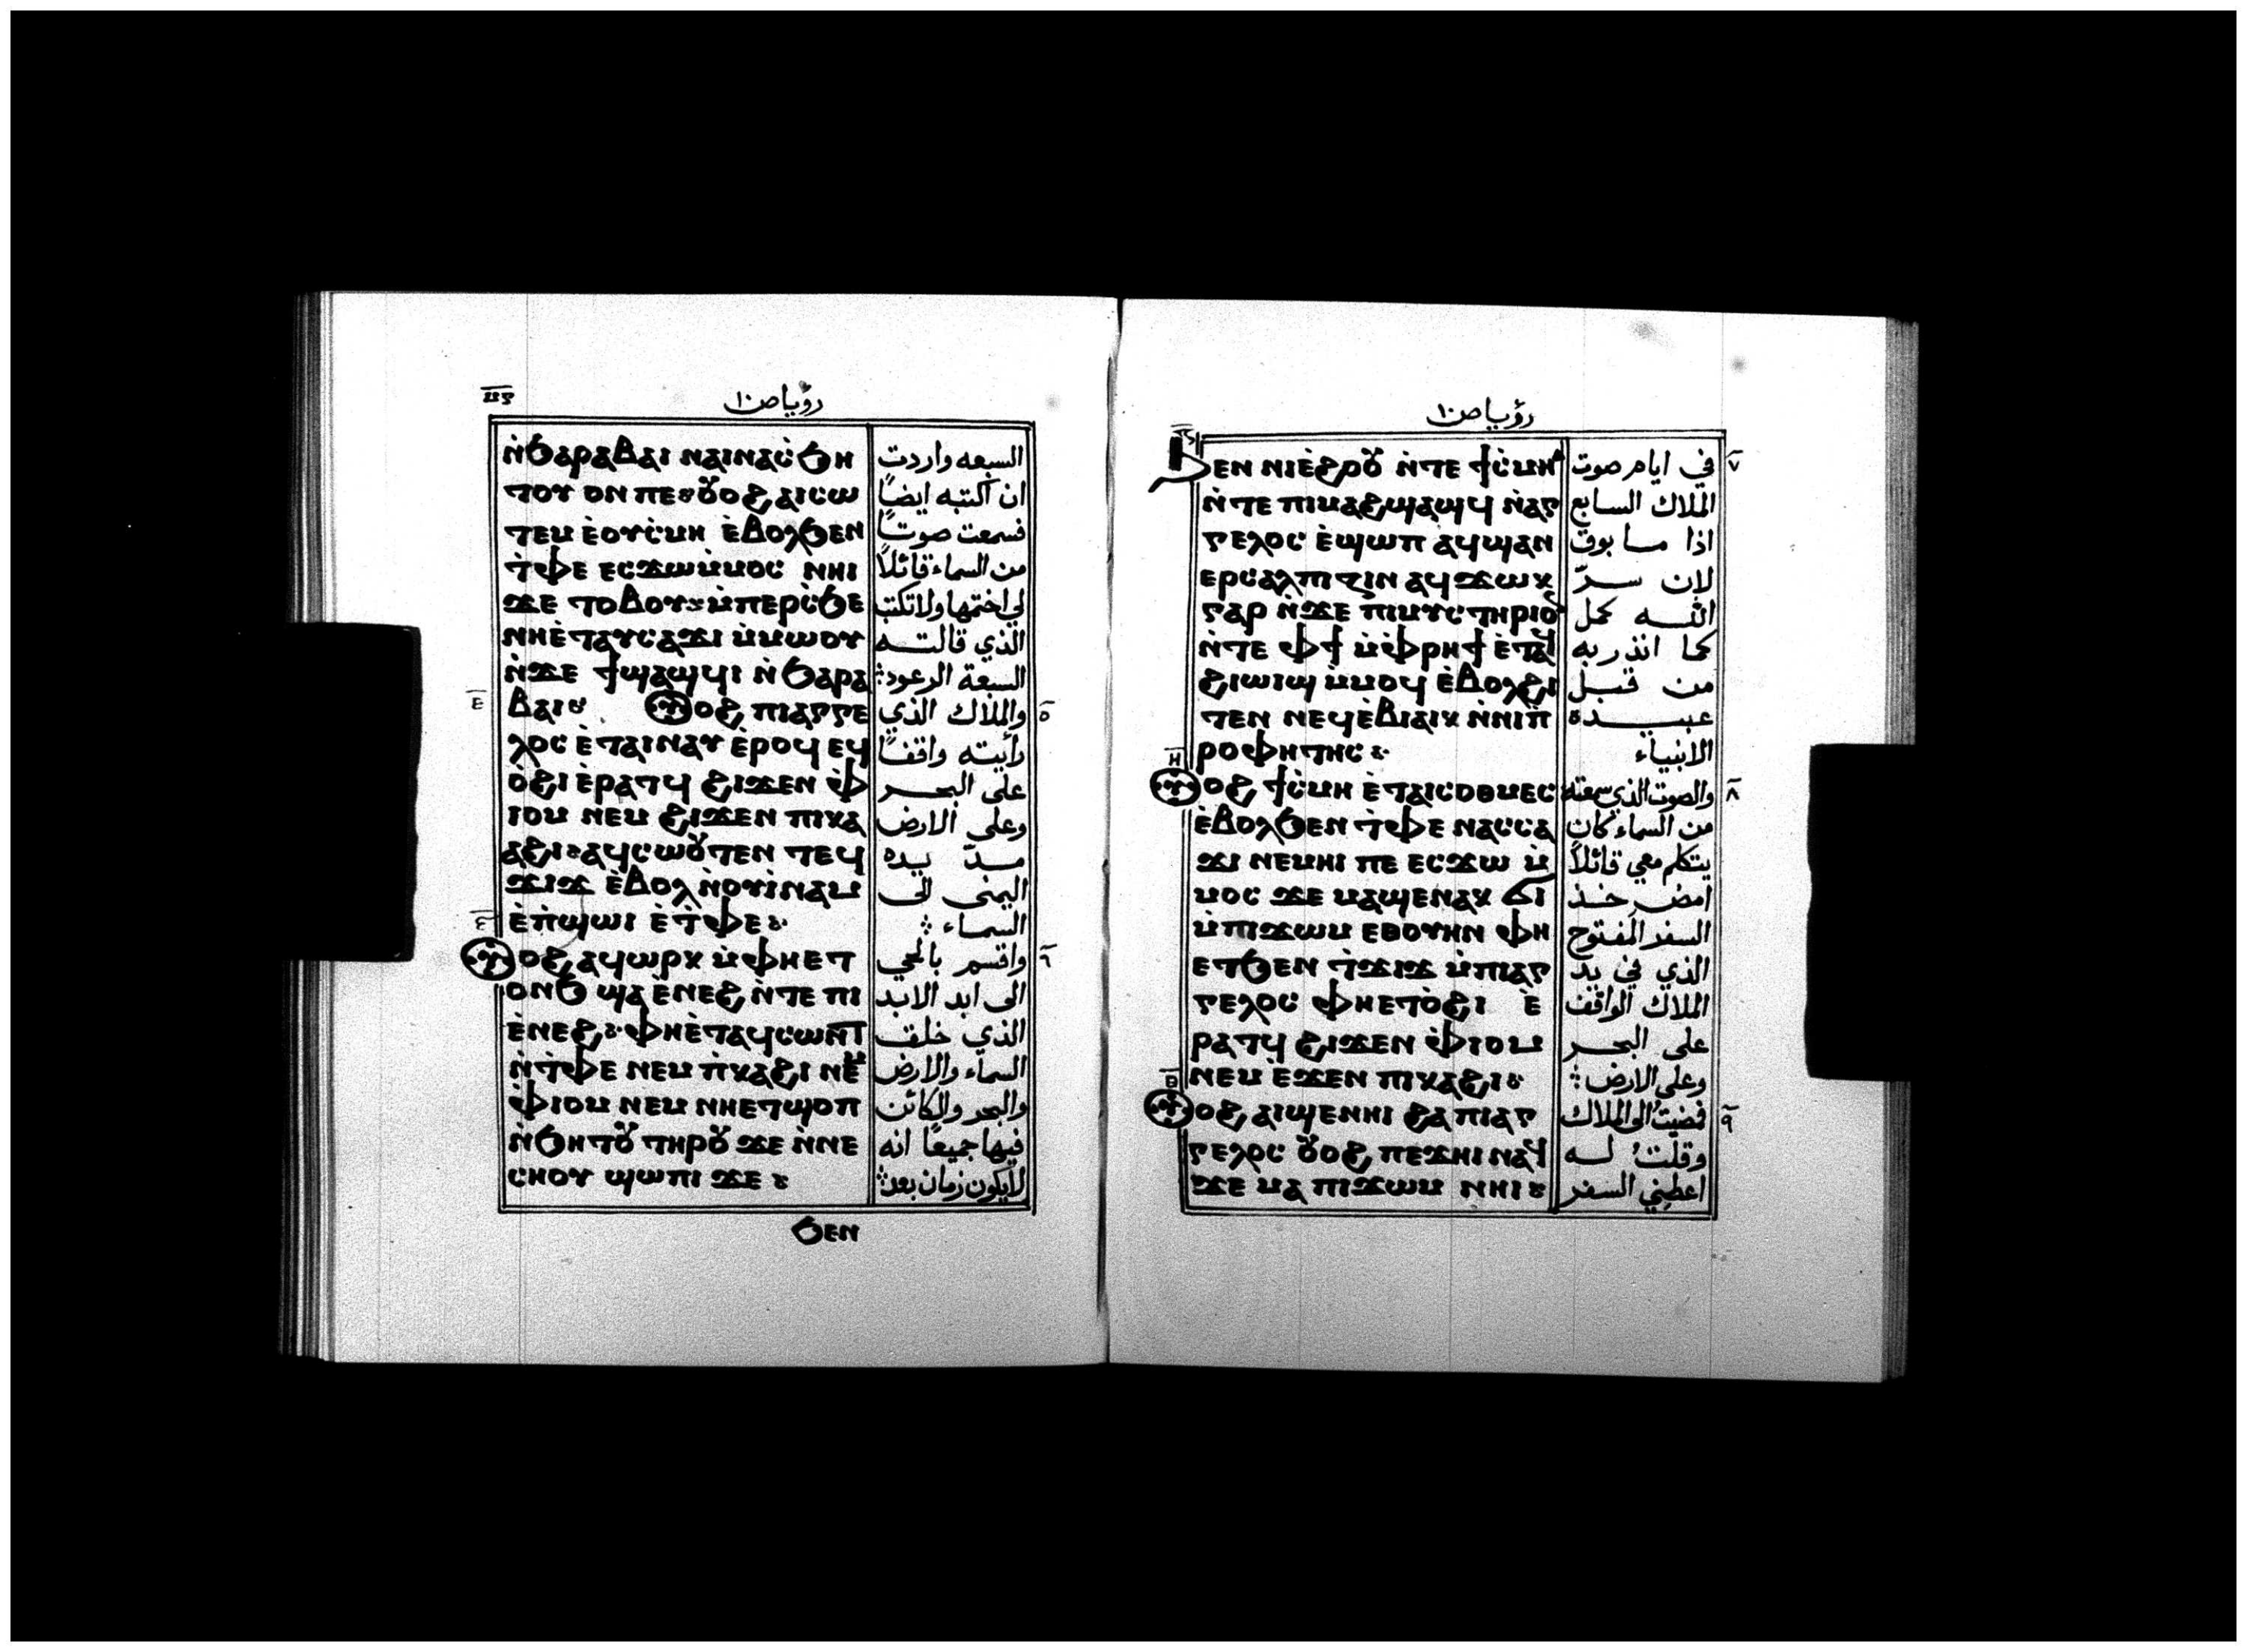 رؤيا ص ١٠
ⲛ̀ϧⲁⲣⲁⲃⲁⲓ ⲛⲁⲓⲛⲁⲥ̀ϧⲏ
ⲧⲟⲩ ⲟⲛ ⲡⲉ
ⲧⲉⲙ ⲉ̀ⲟⲩⲥ̀ⲙⲏ ⲉ̀ⲃⲟⲗϧⲉⲛ
ⲧ̀ⲫⲉ ⲉⲥϫⲱⲙ̀ⲙⲟⲥ ⲛⲏⲓ
ϫⲉ ⲧⲟⲃⲟⲩ ⲙ̀ⲡⲉⲣⲥ̀ϧⲉ
ⲛⲏⲉ̀ⲧⲁⲩⲥⲁϫⲓ ⲙ̀ⲙⲱⲟⲩ
ⲛ̀ϫⲉ ϯϣⲁϣϥⲓ ⲛ̀ϧⲁⲣⲁ
ⲃⲁⲓ ⲟϩ ⲡⲓⲁⲅⲅⲉ
ⲗⲟⲥ ⲉ̀ⲧⲁⲓⲛⲁⲩ ⲉ̀ⲣⲟϥ ⲉϥ
ⲟ̀ϩⲓ ⲉ̀ⲣⲁⲧϥ ϩⲓϫⲉⲛ ⲫ̀
ⲓⲟⲙ ⲛⲉⲙ ϩⲓϫⲉⲛ ⲡⲓⲕⲁ
ⲁϩⲓ ⲁϥⲥⲱⲟⲩⲧⲉⲛ ⲧⲉϥ
ϫⲓϫ ⲉ̀ⲃⲟⲗ ⲛ̀ⲟⲩⲓ̀ⲛⲁⲙ
ⲉ̀ⲡ̀ϣⲱⲓ ⲉ̀ⲧ̀ⲫⲉ
ⲟϩ ⲁϥⲱⲣⲕ ⲙ̀ⲫⲏⲉⲧ
ⲟⲛϧ ϣⲁ ⲉ̀ⲛⲉϩ ⲛ̀ⲧⲉ ⲡⲓ
ⲉ̀ⲛⲉϩ ⲫⲏⲉ̀ⲧⲁϥⲥⲱⲛⲧ
ⲛ̀ⲧ̀ⲫⲉ ⲛⲉⲙ ⲡ̀ⲕⲁϩⲓ ⲛⲉⲙ
ⲫ̀ⲓⲟⲙ ⲛⲉⲙ ⲛⲏⲉⲧϣⲟⲡ
ⲛ̀ϧⲏⲧⲟⲩ ⲧⲏⲣⲟⲩ ϫⲉ ⲛ̀ⲛⲉ
ⲥⲏⲟⲩ ϣⲱⲡⲓ ϫⲉ
السبعه واردت
ان اكتبه ايضاً
فسمعت صوتاً
من السماء قائلاً
لي اختمها ولا تكتب
الذي قالته
السبعة الرعود
والملاك الذي ٥
رأيته واقفاً
على البحر
وعلى الارض
مدّ يده
اليمنى الى
السماء
واقسم بالحي ٦
الى ابد الابد
الذي خلق
السماء والارض
والبحر والكائن
فيها جميعاً انه
لا يكون زمان بعد
ϧⲉⲛ
رؤيا ص ١٠
ϧⲉⲛ ⲛⲓⲉ̀ϩⲣⲟⲩ ⲛ̀ⲧⲉ ϯⲥ̀ⲙⲏ
ⲛ̀ⲧⲉ ⲡⲓⲙⲁϩϣⲁϣϥ ⲛ̀ⲁⲅ
ⲅⲉⲗⲟⲥ ⲉ̀ϣⲱⲡ ⲁϥϣⲁⲛ
ⲉⲣⲥⲁⲗⲡⲓⲍⲓⲛ ⲁϥϫⲱⲕ
ⲅⲁⲣ ⲛ̀ϫⲉ ⲡⲓⲙⲩⲥⲧⲏⲣⲓⲟⲛ
ⲛ̀ⲧⲉ ⲫϯ ⲙ̀ⲫ̀ⲣⲏϯ ⲉ̀ⲧⲁϥ
ϩⲓⲱⲓϣ ⲙ̀ⲙⲟϥ ⲉ̀ⲃⲟⲗϩⲓ
ⲧⲉⲛ ⲛⲉϥⲉ̀ⲃⲓⲁⲓⲕ ⲛ̀ⲛⲓⲡ̀
ⲣⲟⲫⲏⲧⲏⲥ
ⲟϩ ϯⲥ̀ⲙⲏ ⲉ̀ⲧⲁⲓⲥⲟⲑⲙⲉⲥ
ⲉ̀ⲃⲟⲗϧⲉⲛ ⲧ̀ⲫⲉ ⲛⲁⲥⲥⲁ
ϫⲓ ⲛⲉⲙⲏⲓ ⲡⲉ ⲉⲥϫⲱ ⲙ̀
ⲙⲟⲥ ϫⲉ ⲙⲁϣⲉⲛⲁⲕ ϭⲓ
ⲙ̀ⲡⲓϫⲱⲙ ⲉⲑⲟⲩⲏⲛ ⲫⲏ
ⲉⲧϧⲉⲛ ⲧ̀ϫⲓϫ ⲙ̀ⲡⲓⲁⲅ
ⲅⲉⲗⲟⲥ ⲫⲏⲉⲧⲟ̀ϩⲓ ⲉ̀
ⲣⲁⲧϥ ϩⲓϫⲉⲛ ⲫ̀ⲓⲟⲙ
ⲛⲉⲙ ⲉ̀ϫⲉⲛ ⲡⲓⲕⲁϩⲓ
ⲟϩ ⲁⲓϣⲉⲛⲏⲓ ϩⲁ ⲡⲓⲁⲅ
ⲅⲉⲗⲟⲥ ⲟⲩⲟϩ ⲡⲉϫⲏⲓ ⲛⲁϥ
ϫⲉ ⲙⲁ ⲡⲓϫⲱⲙ ⲛⲏⲓ
في ايام صوت ٧
الملاك السابع
اذا ما بوق
لان سرّ
الله كمل
كما انذر به
من قبل
عبيده
الانبياء
والصوت الذي سمعته ٨
من السماء كان
يتكلم معي قائلاً
امض خذ
السفر المفتوح
الذي في يد
الملاك الواقف
على البحر
وعلى الارض
فمضيتُ الى الملاك ٩
وقلتُ له
اعطِني السفر